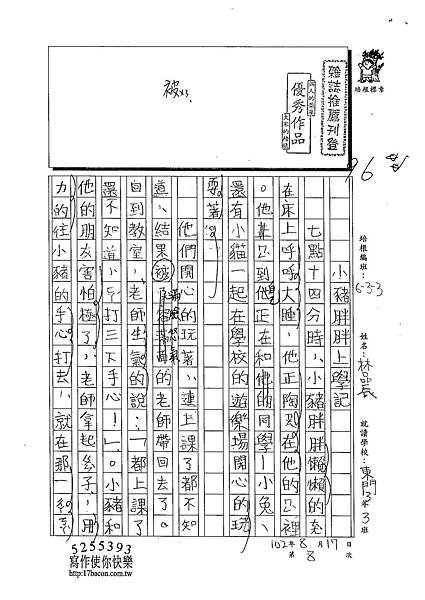 雜誌推薦刊登
優秀作品
被
96
培根標章
培根編班:6-3-3
姓名:林品辰
就讀學校:東門3年3班
小豬胖胖上學記
七點十四分時,小豬胖胖懶懶的
在床上呼呼大睡,他正陶
他正在和他的同學—小兔、
還有小貓一起在學校的遊樂場開心的玩
耍著。
他們開心的玩著,連上課了都不知
道,結果被
的老師帶回去了。
回到教室,老師生氣的說:「都上課了
還不知道,打三下手心!」。小豬和
他的朋友害怕極了,老師拿起
用
力的往小豬的手心打去,就在那一
102年8月17日
第8次
5255393
寫作使你快樂
http://17bacon.com.tw